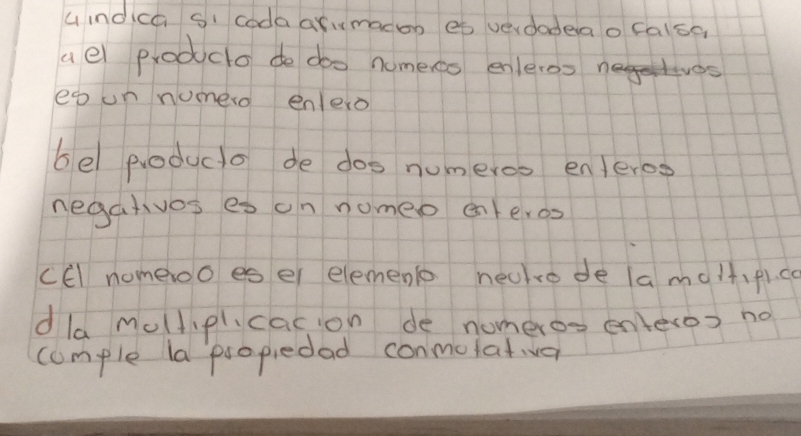 4 indica si coda afirmacon es verdadera o falsa
a el producto de dos numeros enteros negativos
es un numero entero
b el producto de dos numeros enteros
negativos es un numero enteros
c El numero 0 es el elemento neutro de la multiplica
d la multiplicacion de numeros enteros no
cumple la propiedad conmutativa